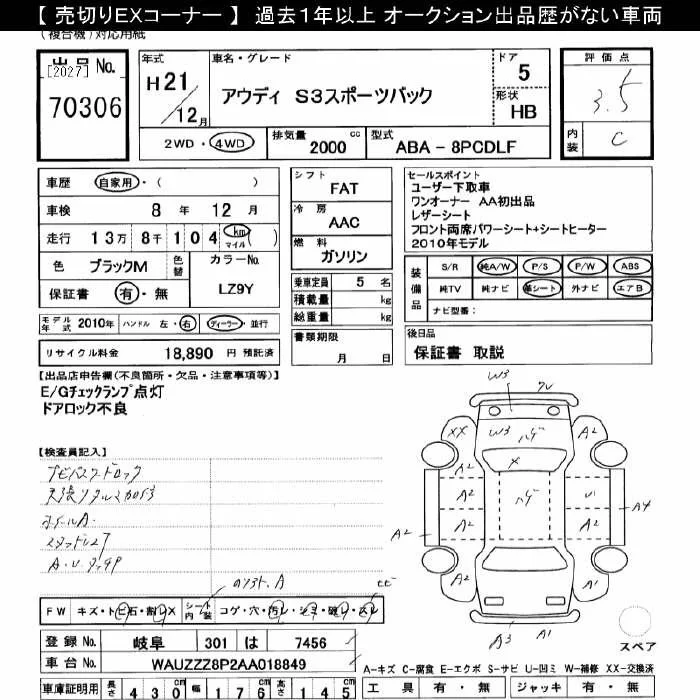 【 売切りEXコーナー 】 過去1年以上 オークション出品歴がない車両
(複合機)対応用紙
出品 No.
[2027]
70306
年式
H21/12月
車名・グレード
アウディ S3スポーツバック
ドア
5
形状
HB
評価点
3.5
内装
C
2WD・4WD
排気量
2000 cc
型式
ABA - 8PCDLF
車歴 自家用・( )
車検 8 年 12 月
走行 13万 8千 104 km マイル ( )
色 ブラックM 色替
カラーNo.
LZ9Y
保証書 有・無
シフト
FAT
冷房
AAC
燃料
ガソリン
乗車定員 5 名
積載量 kg
総重量 kg
書類期限
月 日
セールスポイント
ユーザー下取車
ワンオーナー AA初出品
レザーシート
フロント両席パワーシート+シートヒーター
2010年モデル
装備品
S/R 純A/W P/S P/W ABS
純TV 純ナビ 革シート 外ナビ エアB
ナビ型番:
モデル年式 2010年 ハンドル 左・右 ディーラー・並行
リサイクル料金 18,890 円 預託済
後日品
保証書 取説
【出品店申告欄(不良箇所・欠品・注意事項等)】
E/Gチェックランプ点灯
ドアロック不良
【検査員記入】
ホイールA
W3
W3
XX
A2
A2
A2
A2
A2
A2
A2
A2
A2
A2
A1
U1
A4
A3
A1
FW キズ・トビ石・割レX シート内装 コゲ・穴・汚レ・シミ・破レ・スレ
登録 No. 岐阜 301 は 7456
車台 No. WAUZZZ8P2AA018849
車庫証明用 長さ 430cm 幅 176cm 高さ 145cm
スペア
A-キズ C-腐食 E-エクボ S-サビ U-凹ミ W-補修 XX-交換済
工具 有・無 ジャッキ 有・無